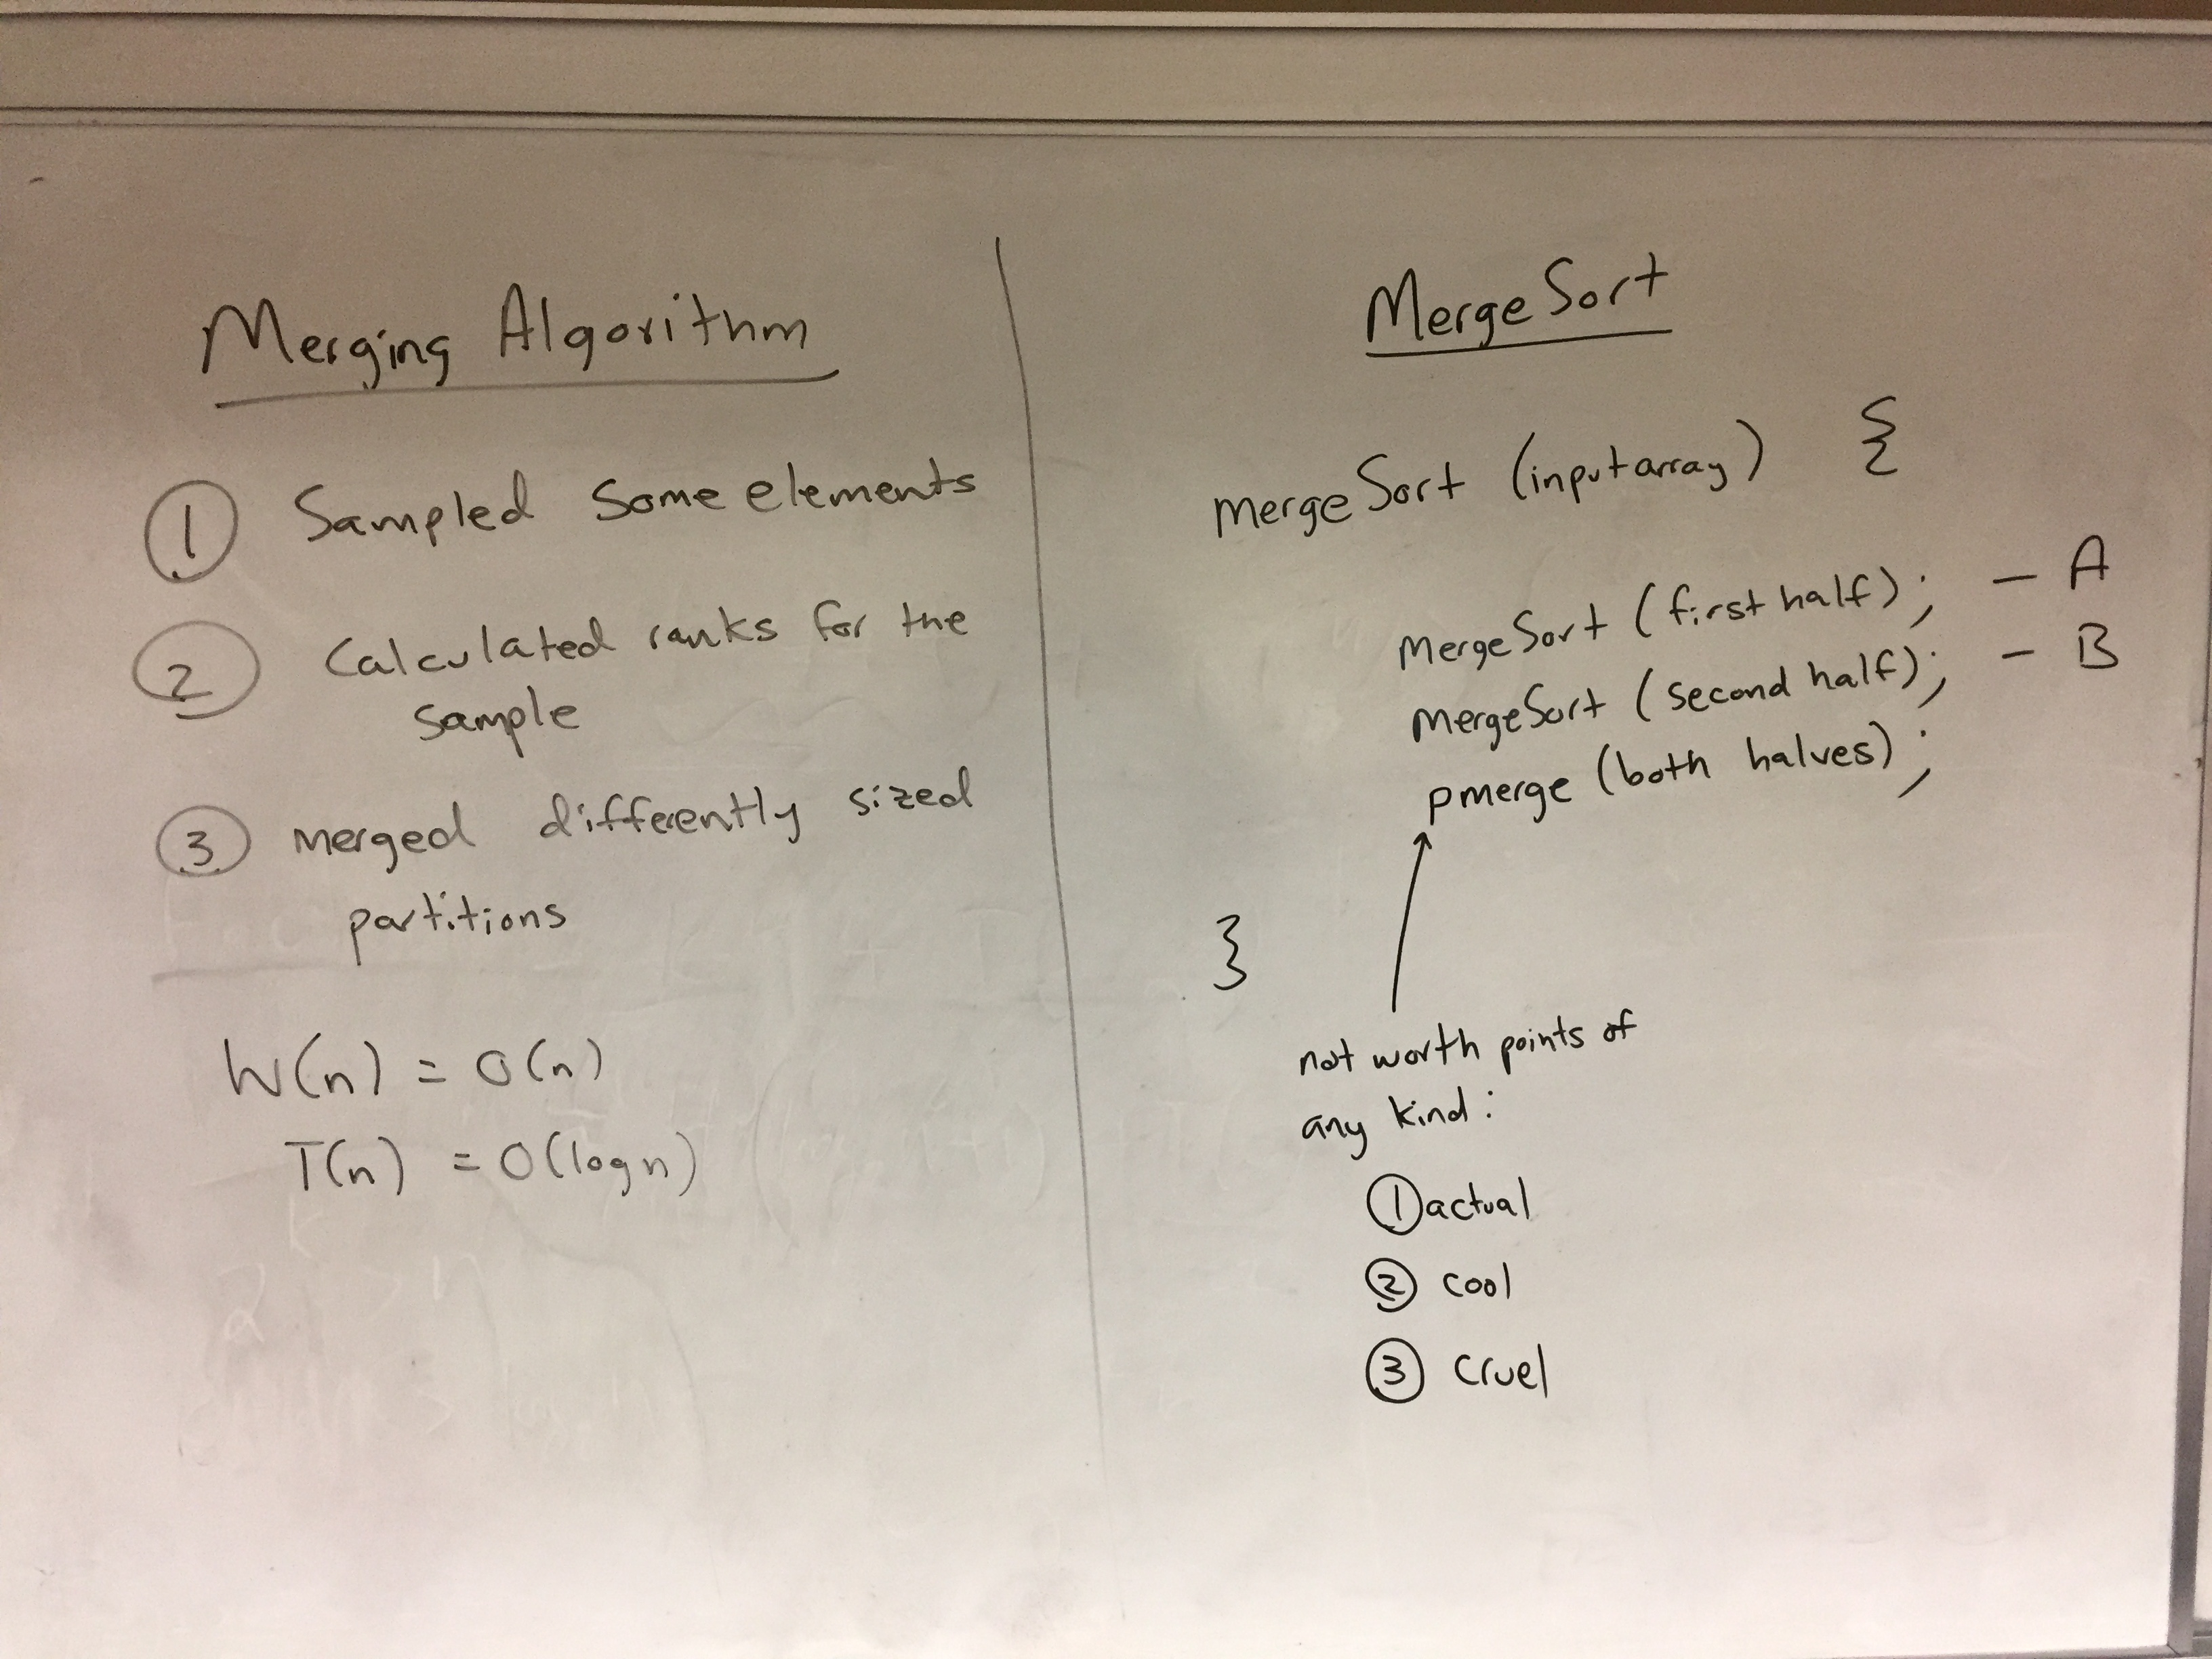 Merging Algorithm
1 Sampled some elements
2 Calculated ranks for the
sample
3 merged differently sized
partitions
W(n) = O(n)
T(n) = O(log n)
MergeSort
mergeSort (input array) {
mergeSort (first half); - A
mergeSort (second half); - B
pmerge (both halves);
}
not worth points of
any kind:
1 actual
2 cool
3 cruel